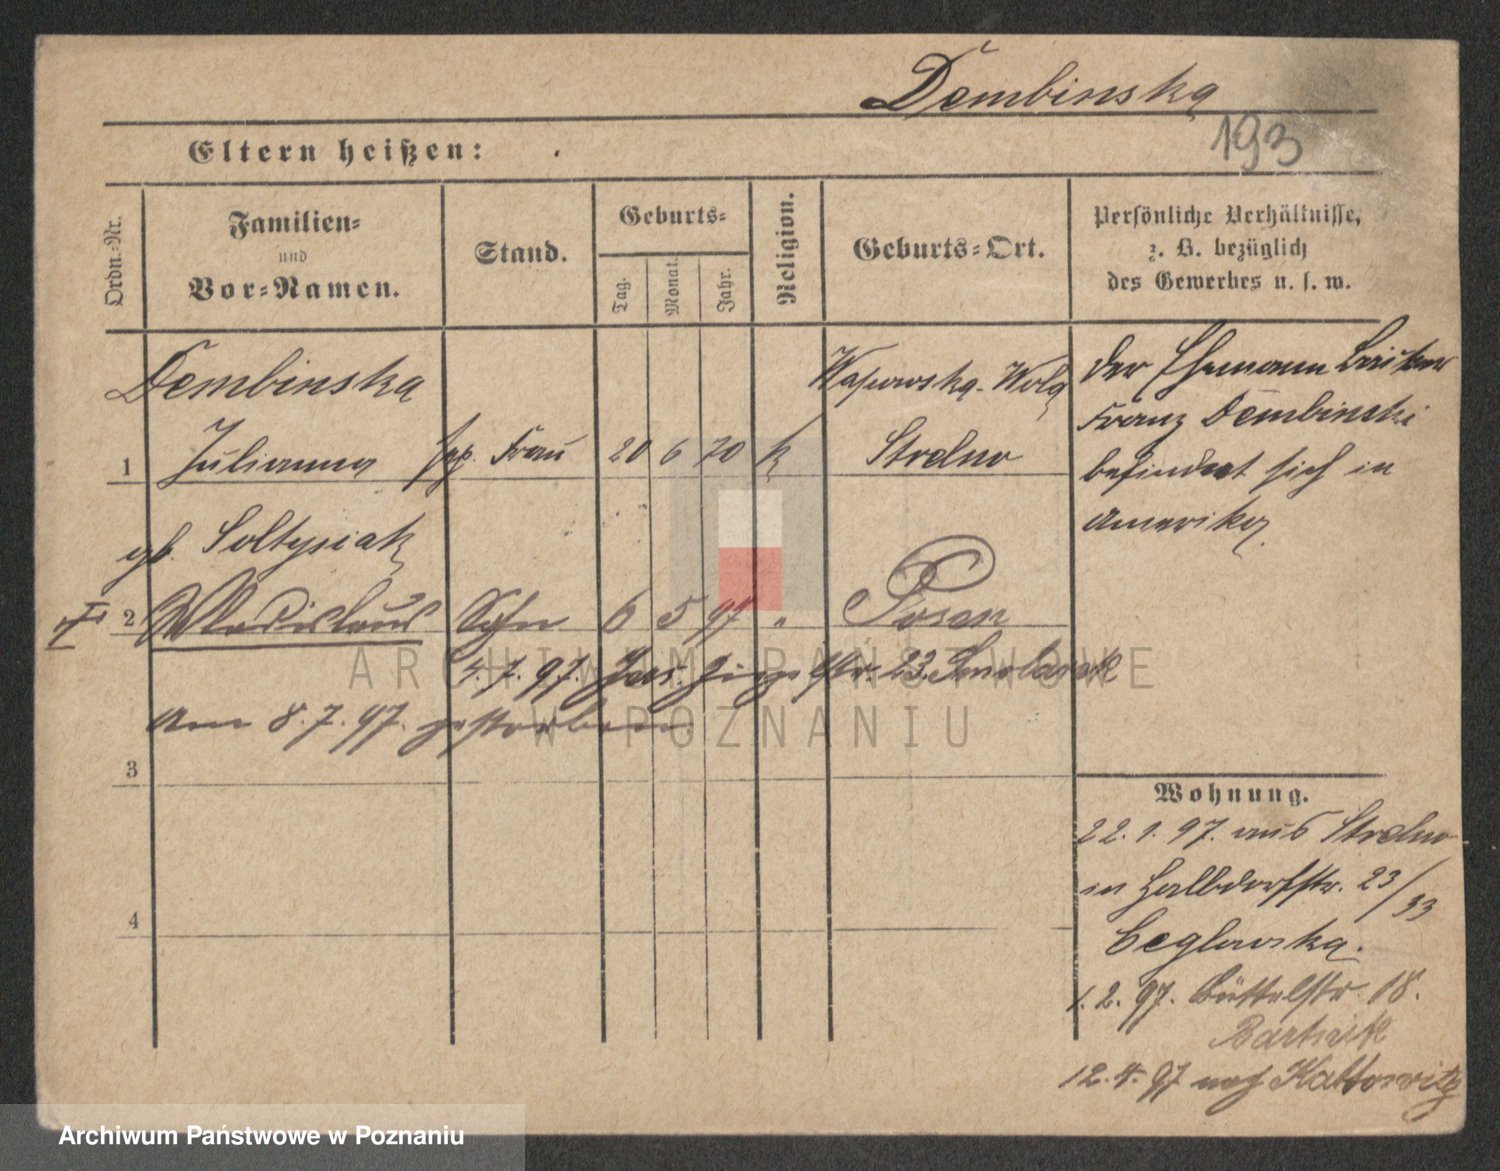 Dembinska
193
Eltern heißen:
Ordn.-Nr.
Familien-
und
Vor-Namen.
Stand.
Geburts-
Tag.
Monat.
Jahr.
Religion.
Geburts-Ort.
Persönliche Verhältnisse,
z. B. bezüglich
des Gewerbes u. s. w.
Dembinska
1 Julianna sep. Frau 20 6 70 k
gb. Soltysiak
Wola
Strelno
Der Ehemann
Franz Dembinski
befindet sich in
Amerika
2 Wladislaus Sohn 6 5 97 " Posen
5. 7. 97. str. 23. Smolarek
Am 8. 7. 97. gestorben
3
4
Wohnung.
22. 1. 97. aus Strelno
in Halbdorfstr. 23/33
Ceglarska.
1. 2. 97. Büttelstr. 18.
12. 4. 97 nach Kattowitz
ARCHIWUM PAŃSTWOWE
W POZNANIU
Archiwum Państwowe w Poznaniu